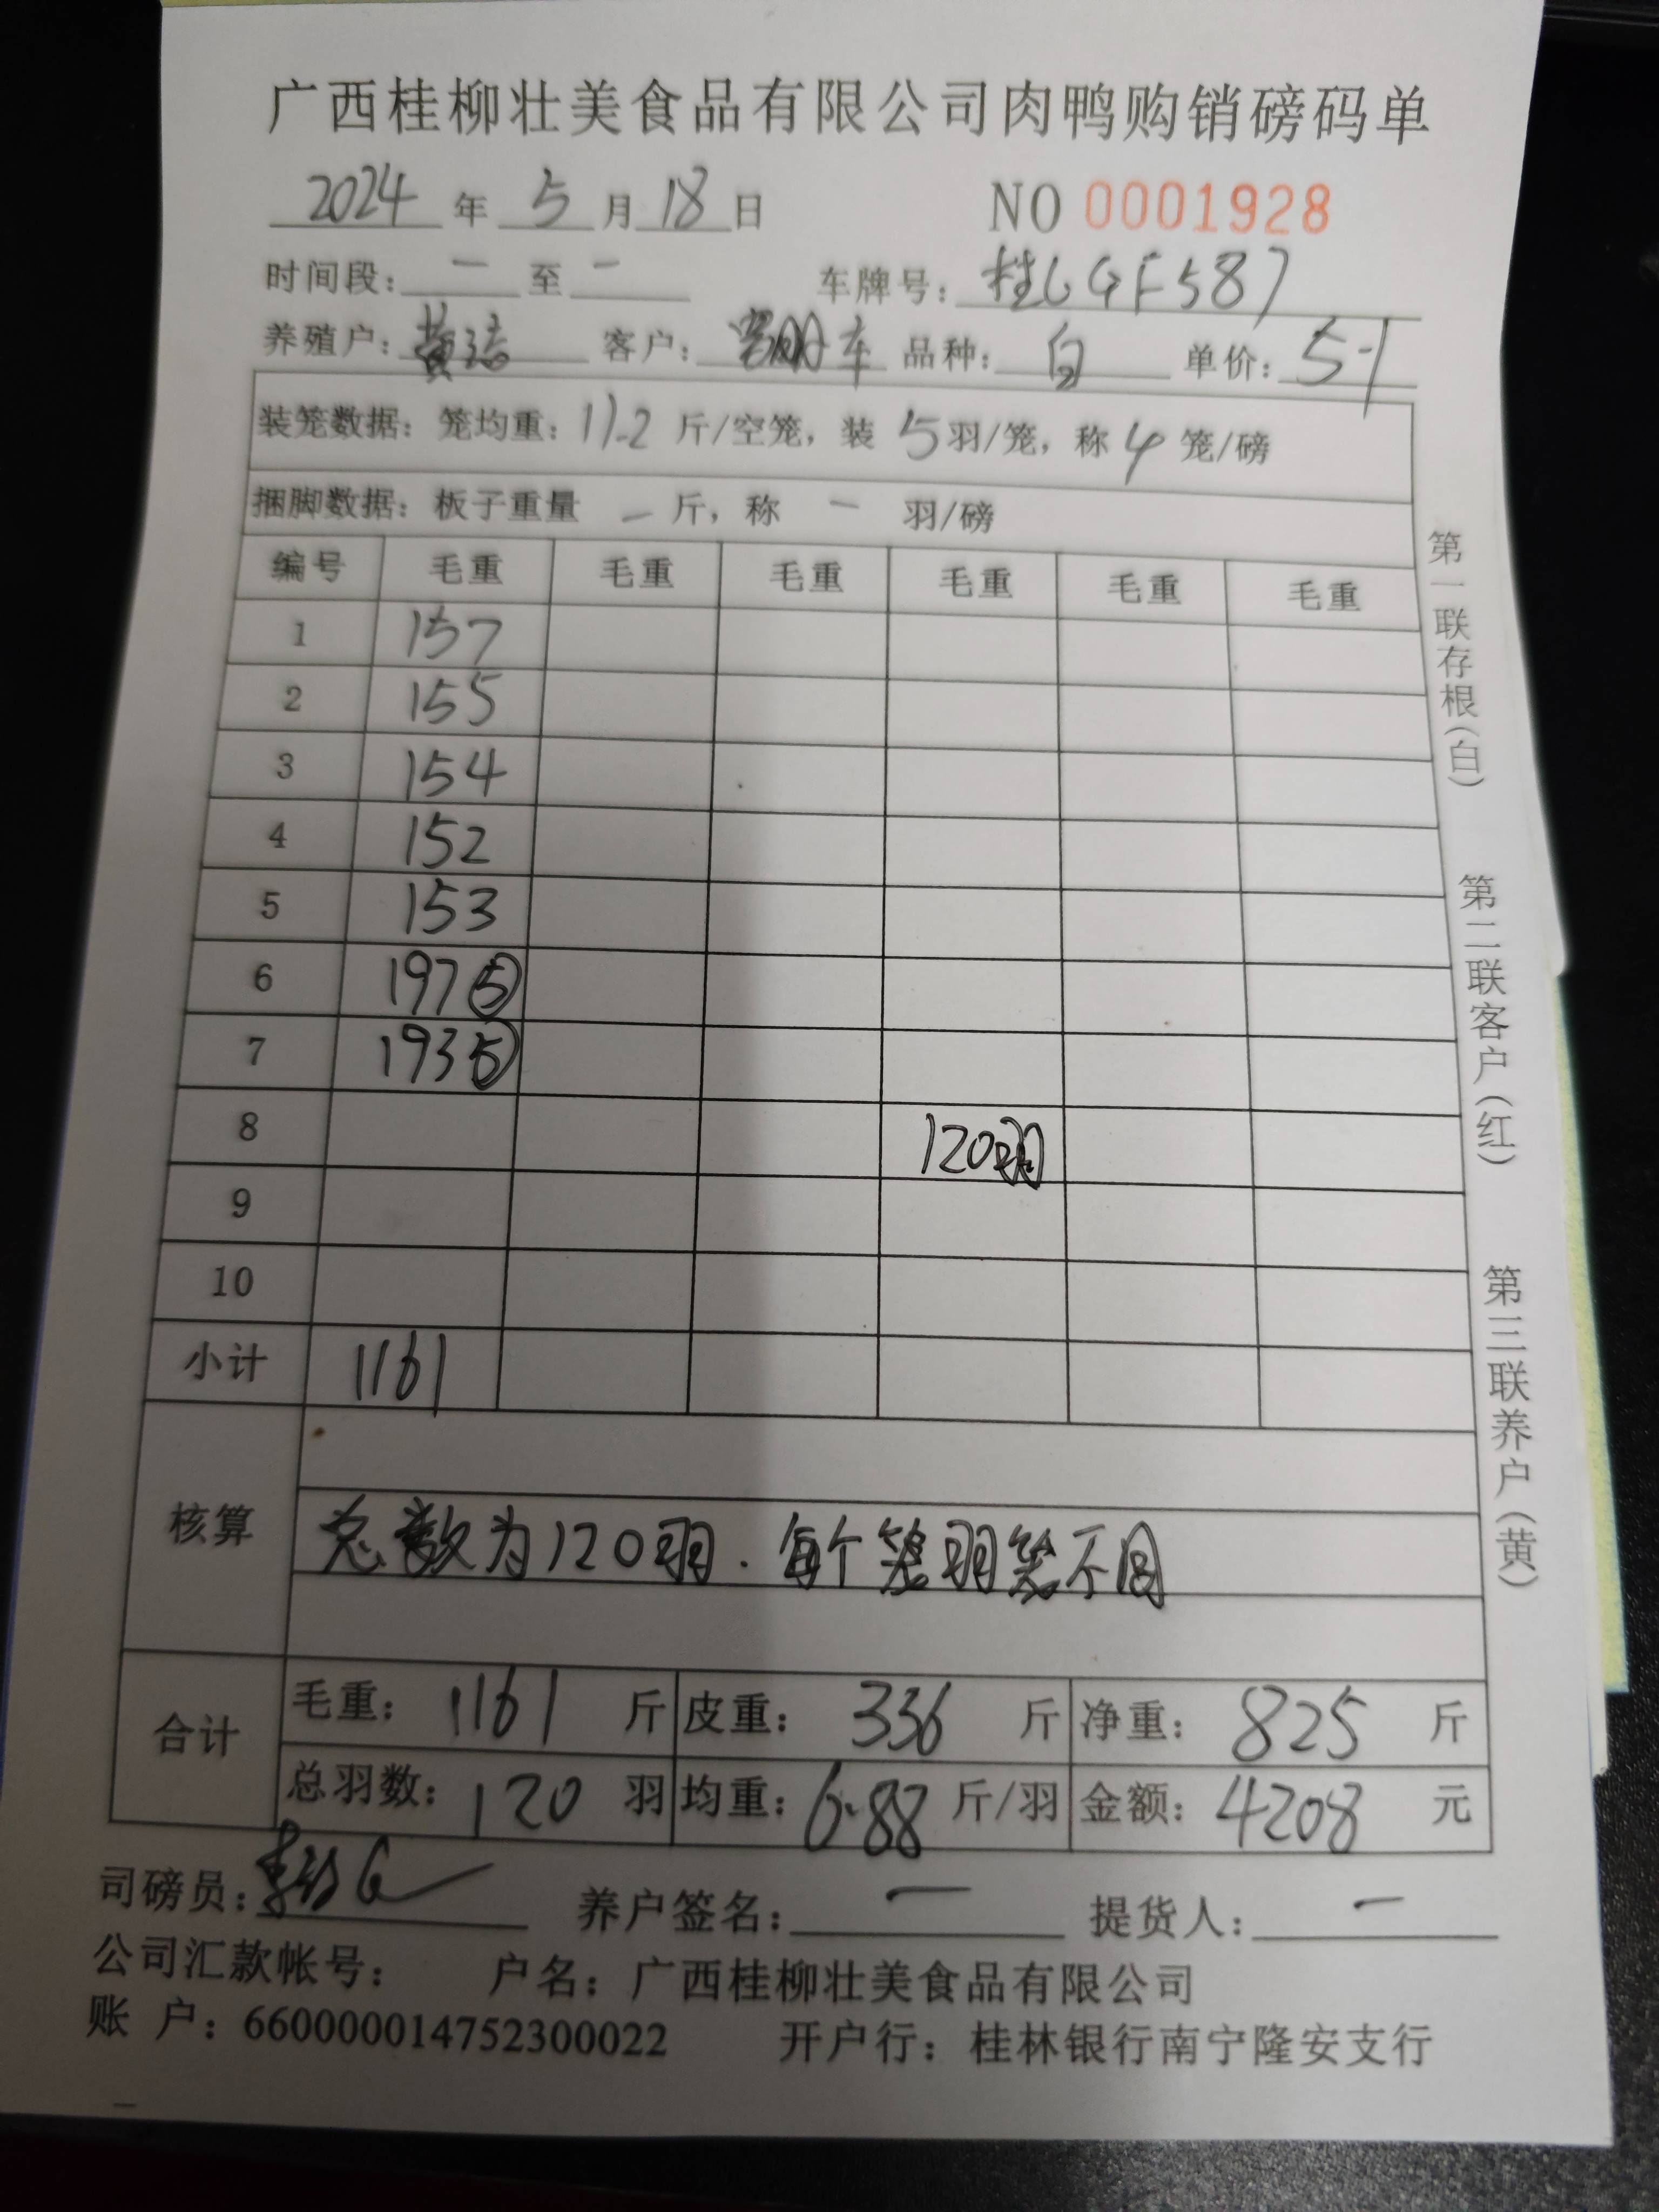 广西桂柳壮美食品有限公司肉鸭购销磅码单
2024 年 5 月 18 日 NO 0001928
时间段: 一 至 一 车牌号: 桂LGF587
养殖户: 黄 客户: 车 品种: 白 单价: 5.1
装笼数据: 笼均重: 11.2 斤/空笼, 装 5 羽/笼, 称 4 笼/磅
捆脚数据: 板子重量 一 斤, 称 一 羽/磅
编号 毛重 毛重 毛重 毛重 毛重 毛重
1 157
2 155
3 154
4 152
5 153
6 197⑤
7 193⑤
8 120羽
9
10
小计 1161
核算
总数为120羽.每个笼羽笼不同
合计
毛重: 1161 斤 皮重: 336 斤 净重: 825 斤
总羽数: 120 羽 均重: 6.88 斤/羽 金额: 4208 元
司磅员: 养户签名: 一 提货人: 一
公司汇款帐号: 户名: 广西桂柳壮美食品有限公司
账 户: 660000014752300022 开户行: 桂林银行南宁隆安支行
第一联存根(白)
第二联客户(红)
第三联养户(黄)